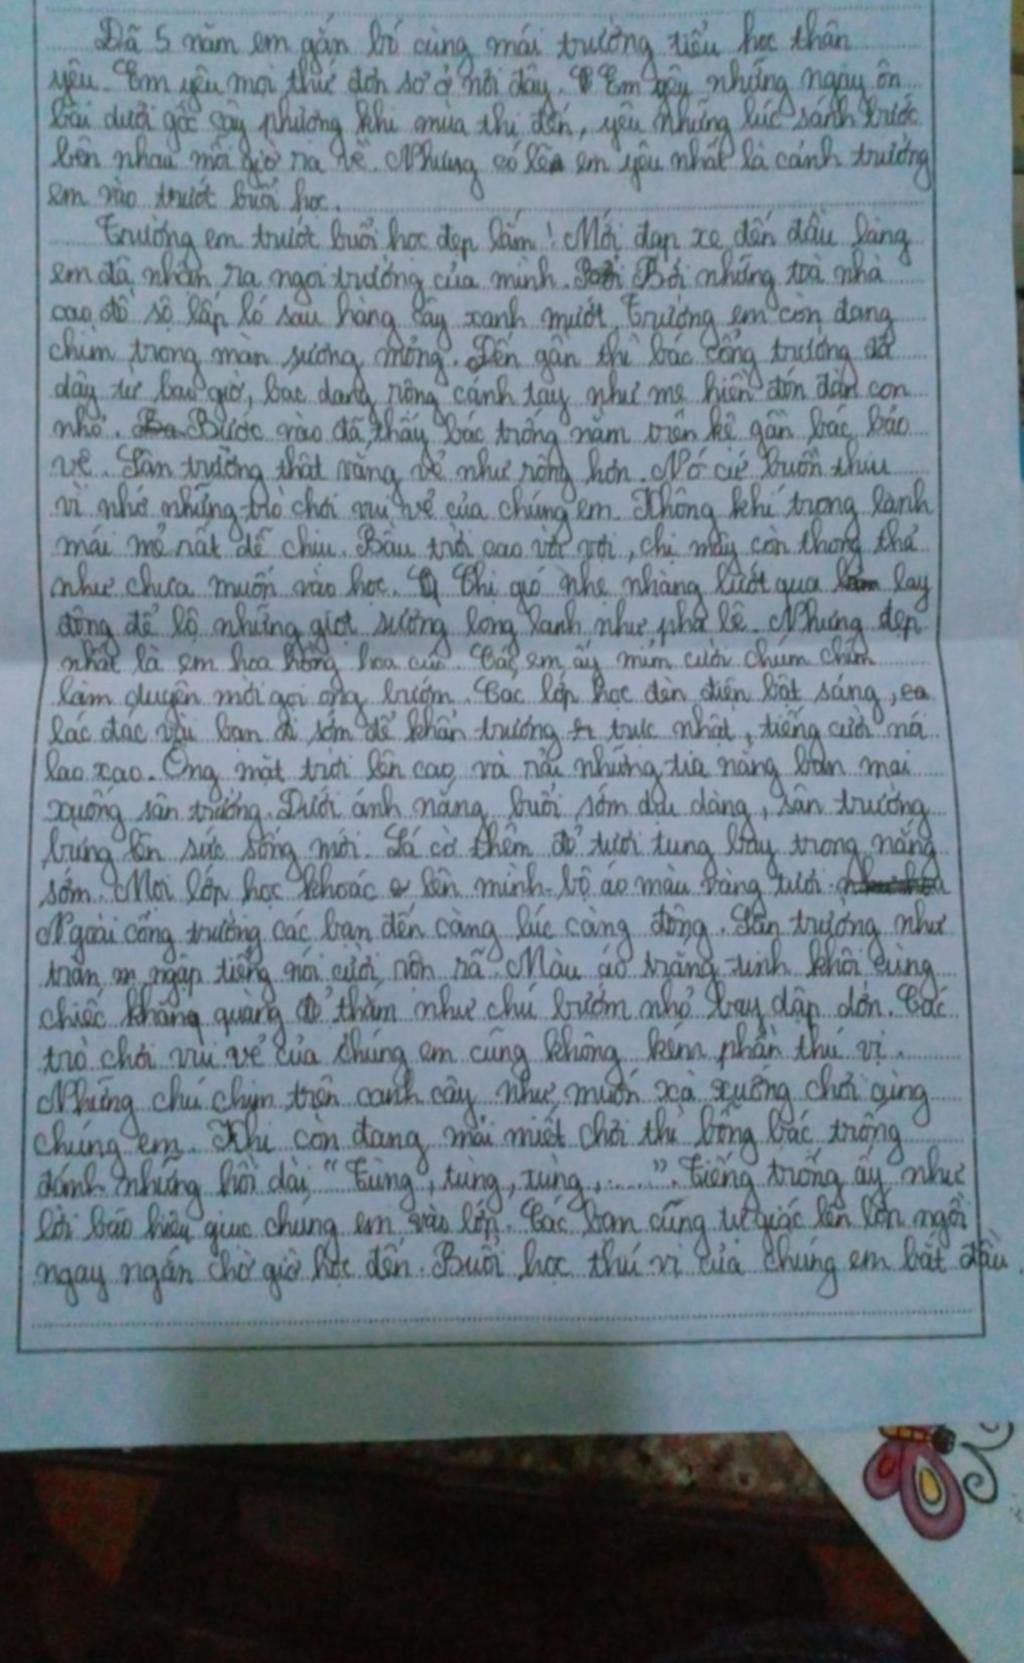 Đã 5 năm em gắn bó cùng mái trường tiểu học thân
yêu. Em yêu mọi thứ đơn sơ ở nơi đây. Em yêu những ngày ôn
bài dưới gốc cây phượng khi mùa thi đến, yêu những lúc sánh bước
bên nhau mỗi giờ ra về. Nhưng có lẽ em yêu nhất là cảnh trường
em vào trướt buổi học.
Trường em trướt buổi học đẹp lắm! Mới đạp xe đến đầu làng
em đã nhận ra ngôi trường của mình. Bởi những toà nhà
cao đồ sộ lấp ló sau hàng cây xanh mướt. Trường em còn đang
chìm trong màn sương mỏng. Đến gần thì bác cổng trường đã
dậy từ bao giờ, bác dang rộng cánh tay như mẹ hiền đón đàn con
nhỏ. Bước vào đã thấy bác trống nằm trên kệ gần bác bảo
vệ. Sân trường thật vắng vẻ như rộng hơn. Nó cứ buồn thiu
vì nhớ những trò chơi vui vẻ của chúng em. Không khí trong lành
mái mẻ rất dễ chịu. Bầu trời cao vời vợi, chị mây còn thong thả
như chưa muốn vào học. Chị gió nhẹ nhàng lướt qua lay
động để lộ những giọt sương long lanh như pha lê. Nhưng đẹp
nhất là em hoa hồng, hoa cúc. Các em ấy mỉm cười chúm chím
làm duyên mời gọi ong bướm. Các lớp học đèn điện bật sáng,
lác đác vài bạn đi sớm để khẩn trương trực nhật, tiếng cười nói
lao xao. Ông mặt trời lên cao và rải những tia nắng ban mai
xuống sân trường. Dưới ánh nắng buổi sớm dịu dàng, sân trường
bừng lên sức sống mới. Lá cờ thêm đỏ tươi tung bay trong nắng
sớm. Mọi lớp học khoác lên mình bộ áo màu vàng tươi
Ngoài cổng trường các bạn đến càng lúc càng đông. Sân trường như
tràn ngập tiếng nói cười rôn rã. Màu áo trắng tinh khôi cùng
chiếc khăng quàng đỏ thắm như chú bướm nhỏ bay dập dờn. Các
trò chơi vui vẻ của chúng em cũng không kém phần thú vị.
Những chú chim trên cành cây như muốn xà xuống chơi cùng
chúng em. Khi còn đang mải miết chơi thì bỗng bác trống
đánh những hồi dài "Tùng, tùng, tùng,......". Tiếng trống ấy như
lời báo hiệu giục chúng em vào lớp. Các bạn cũng tự giác lên lớp ngồi
ngay ngắn chờ giờ học đến. Buổi học thú vị của chúng em bắt đầu.